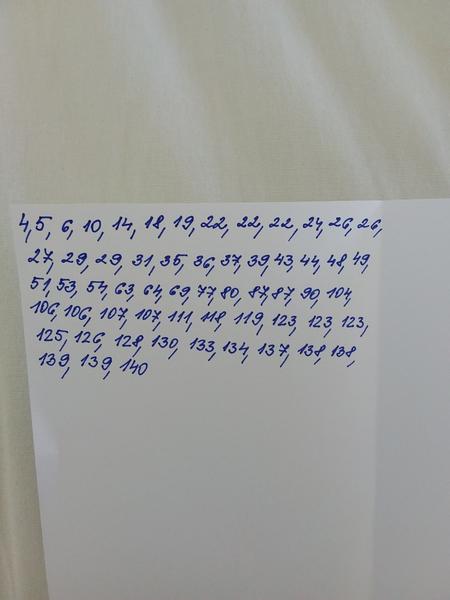 4, 5, 6, 10, 14, 18, 19, 22, 22, 22, 24, 26, 26,
27, 29, 29, 31, 35, 36, 37, 39, 43, 44, 48, 49,
51, 53, 54, 63, 64, 69, 77, 80, 87, 87, 90, 104,
106, 106, 107, 107, 111, 118, 119, 123, 123, 123,
125, 126, 128, 130, 133, 134, 137, 138, 138,
139, 139, 140